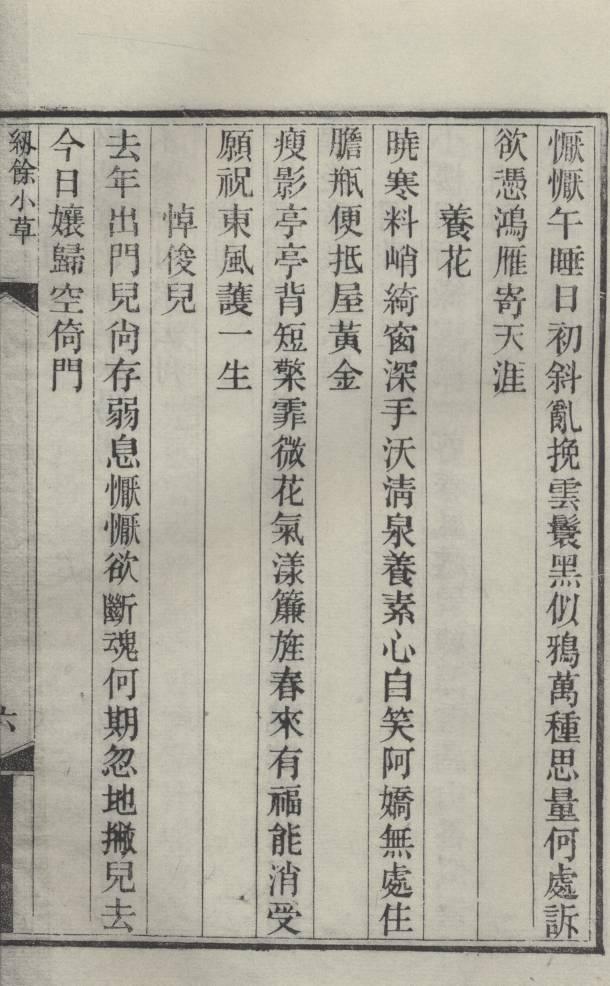 懨懨午睡日初斜亂挽雲鬟黑似鴉萬種思量何處訴
欲憑鴻雁寄天涯
養花
曉寒料峭綺窗深手沃清泉養素心自笑阿嬌無處住
膽甁便抵屋黃金
瘦影亭亭背短檠霏微花氣漾簾旌春來有福能消受
願祝東風護一生
悼俊兒
去年出門兒尙存弱息懨懨欲斷魂何期忽地撇兒去
今日孃歸空倚門
紉餘小草
六